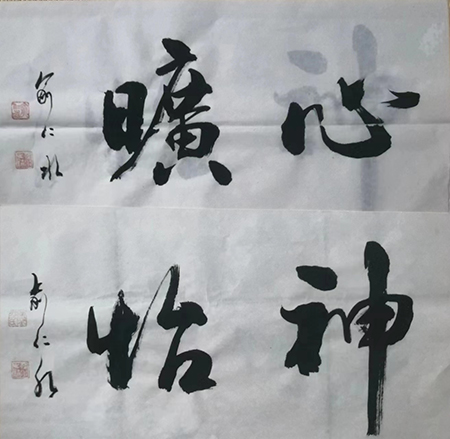 心曠
俞仁水
神怡
俞仁水